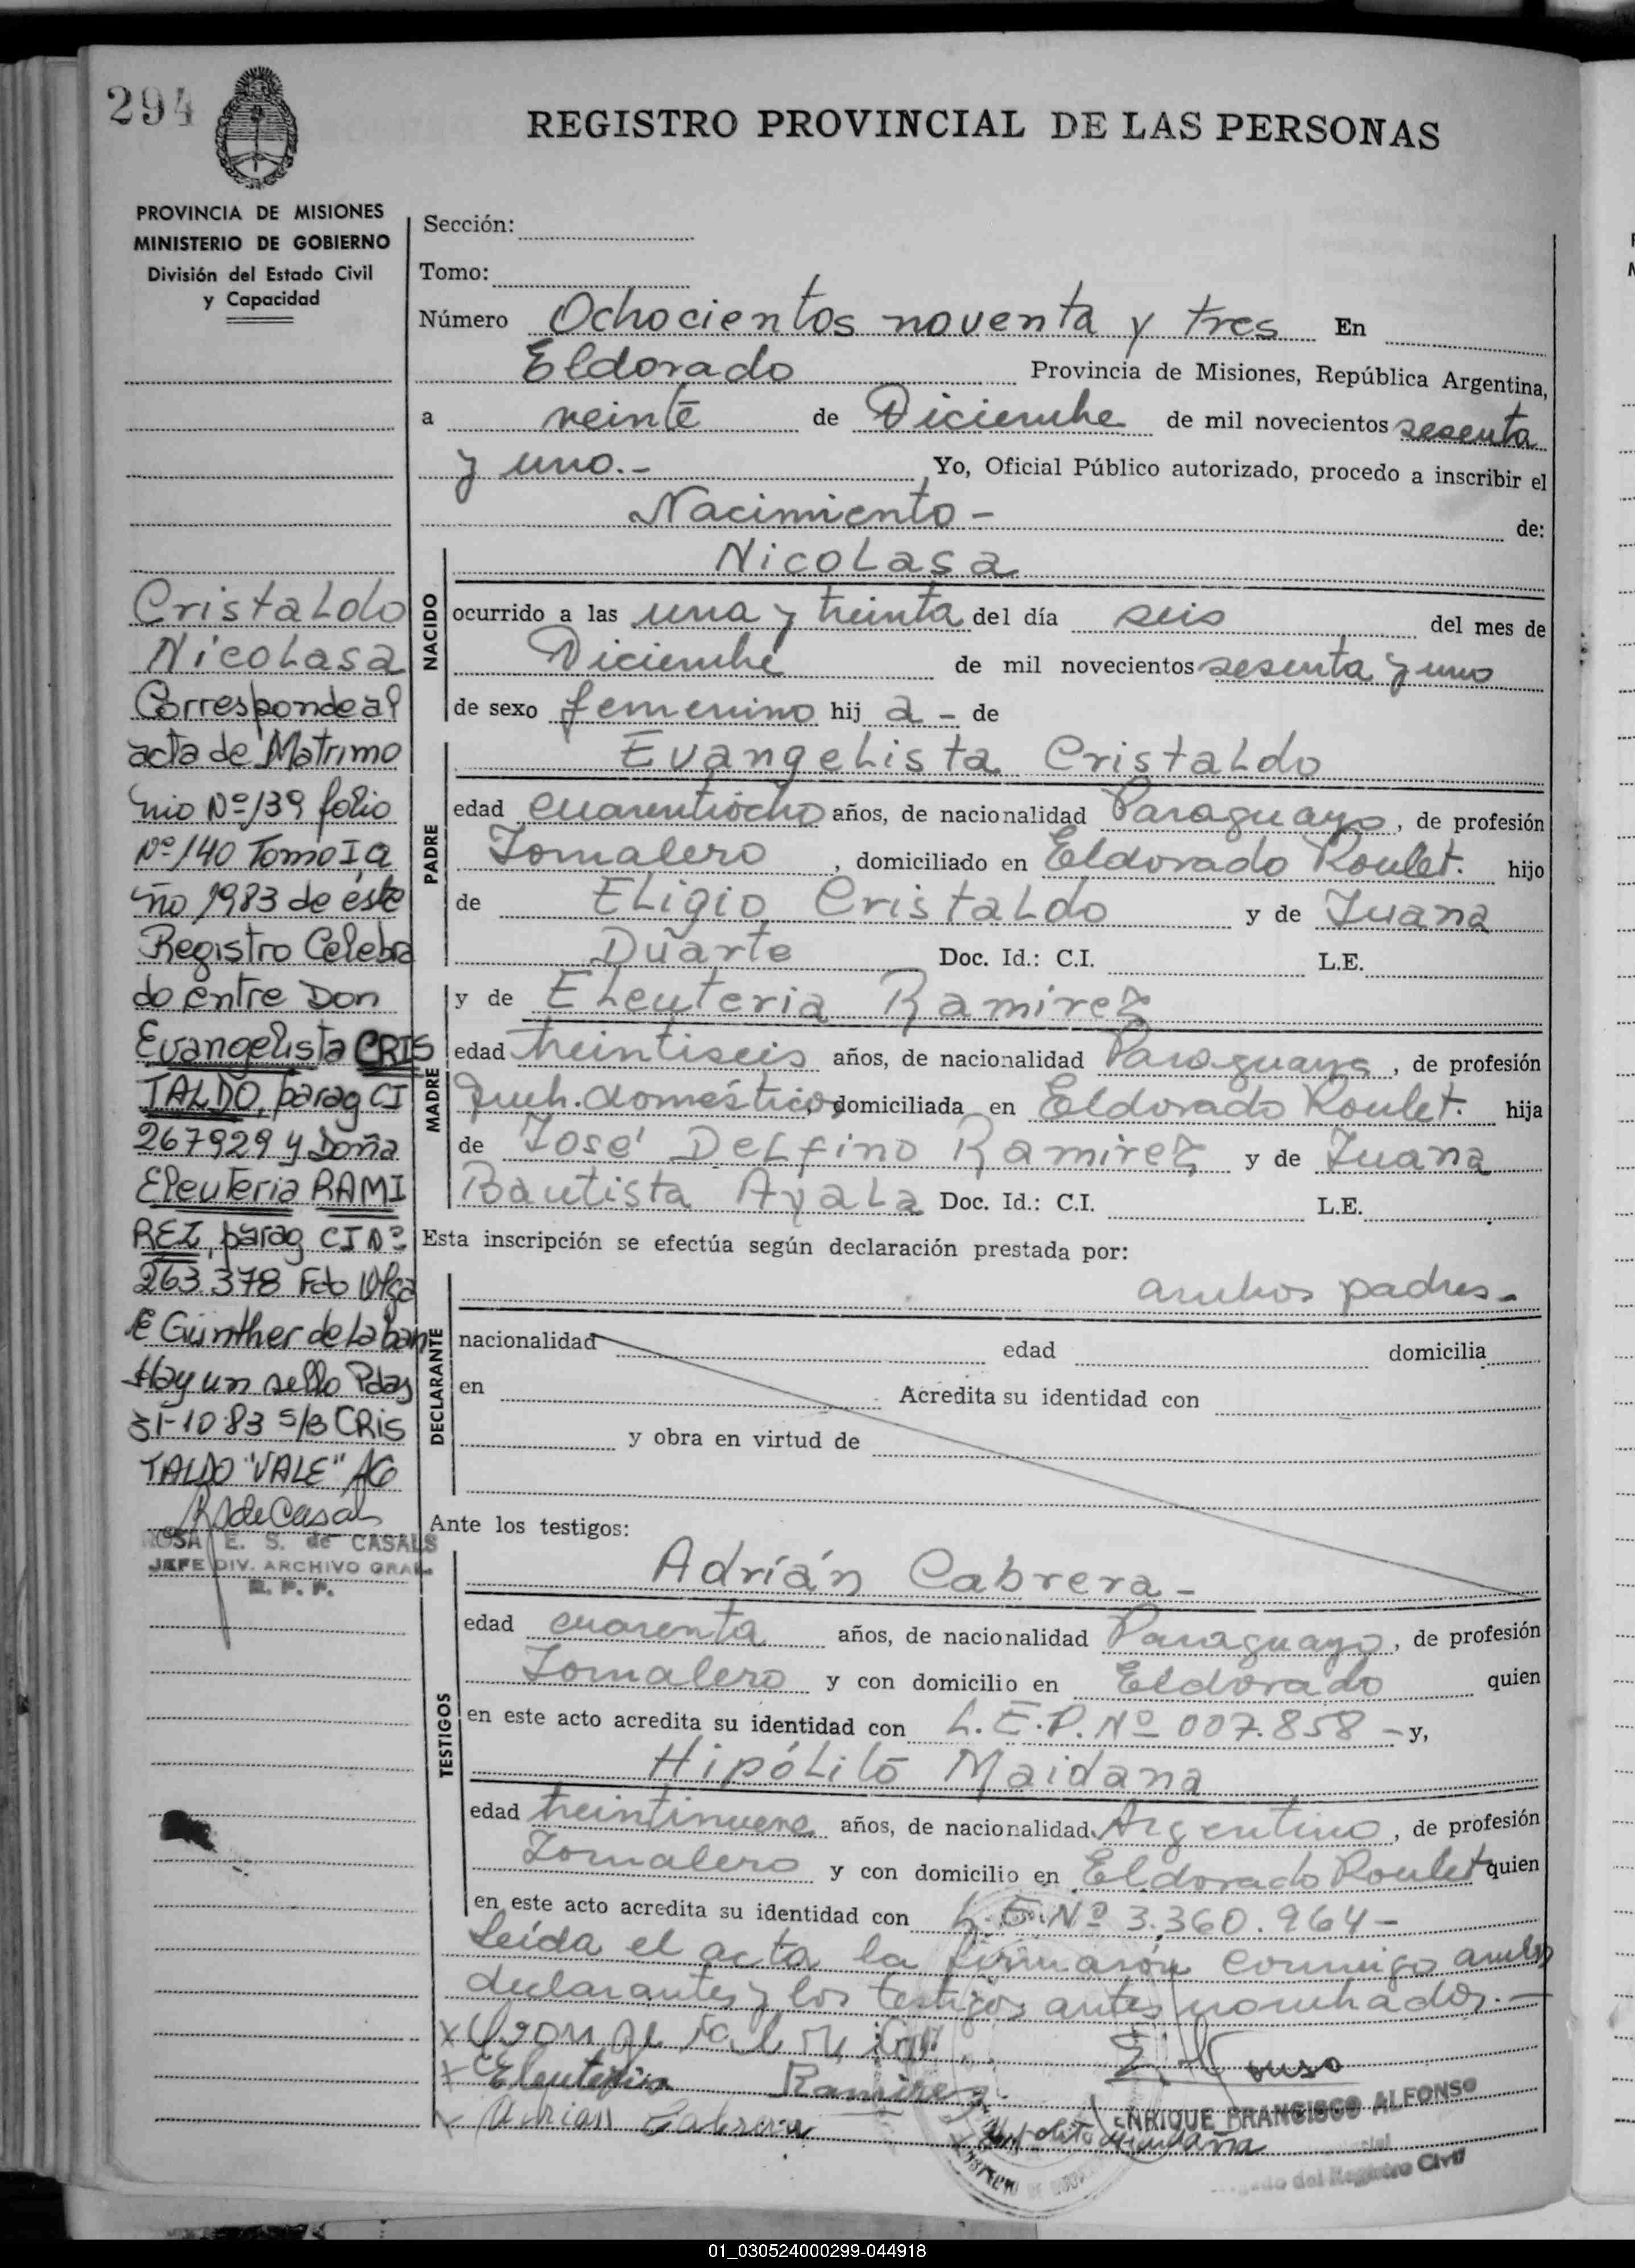 294
REGISTRO PROVINCIAL DE LAS PERSONAS
PROVINCIA DE MISIONES
MINISTERIO DE GOBIERNO
División del Estado Civil
y Capacidad
Cristaldo
Nicolasa
Corresponde al
acta de Matrimo
nio Nº 139 folio
Nº 140 Tomo I a
ño 1983 de éste
Registro Celebra
do entre Don
Evangelista CRIS
TALDO, parag CI
267929 y Doña
Eleuteria RAMI
REZ, parag CI Nº
263.378 Fdo Olga
E Günther de Laban
Hay un sello Pdas
31-10-83 s/B CRIS
TALDO "VALE" AG
RSdeCasals
ROSA E. S. de CASALS
JEFE DIV. ARCHIVO GRAL.
R. P. P.
Sección:
Tomo:
Número Ochocientos noventa y tres En
Eldorado Provincia de Misiones, República Argentina,
a veinte de Diciembre de mil novecientos sesenta
y uno.- Yo, Oficial Público autorizado, procedo a inscribir el
Nacimiento - de:
NACIDO
Nicolasa
ocurrido a las una y treinta del día seis del mes de
Diciembre de mil novecientos sesenta y uno
de sexo femenino hij a - de
PADRE
Evangelista Cristaldo
edad cuarentiocho años, de nacionalidad Paraguayo, de profesión
Jornalero, domiciliado en Eldorado Roulet. hijo
de Eligio Cristaldo y de Juana
Duarte Doc. Id.: C.I. L.E.
MADRE
y de Eleuteria Ramirez
edad treintiseis años, de nacionalidad Paraguaya, de profesión
Queh. domésticos, domiciliada en Eldorado Roulet. hija
de José Delfino Ramirez y de Juana
Bautista Ayala Doc. Id.: C.I. L.E.
Esta inscripción se efectúa según declaración prestada por:
ambos padres.-
DECLARANTE
nacionalidad edad domicilia
en Acredita su identidad con
y obra en virtud de
Ante los testigos:
TESTIGOS
Adrián Cabrera -
edad cuarenta años, de nacionalidad Paraguayo, de profesión
Jornalero y con domicilio en Eldorado quien
en este acto acredita su identidad con L.E.P. Nº 007.858 - y,
Hipólito Maidana
edad treintinueve años, de nacionalidad Argentino, de profesión
Jornalero y con domicilio en Eldorado Roulet quien
en este acto acredita su identidad con L.E. Nº 3.360.964 -
Leída el acta la firmaron conmigo ambos
declarantes y los testigos antes nombrados.-
Eleuteria Ramirez
Adrian Cabrera
ENRIQUE FRANCISCO ALFONSO
del Registro Civil
01_030524000299-044918